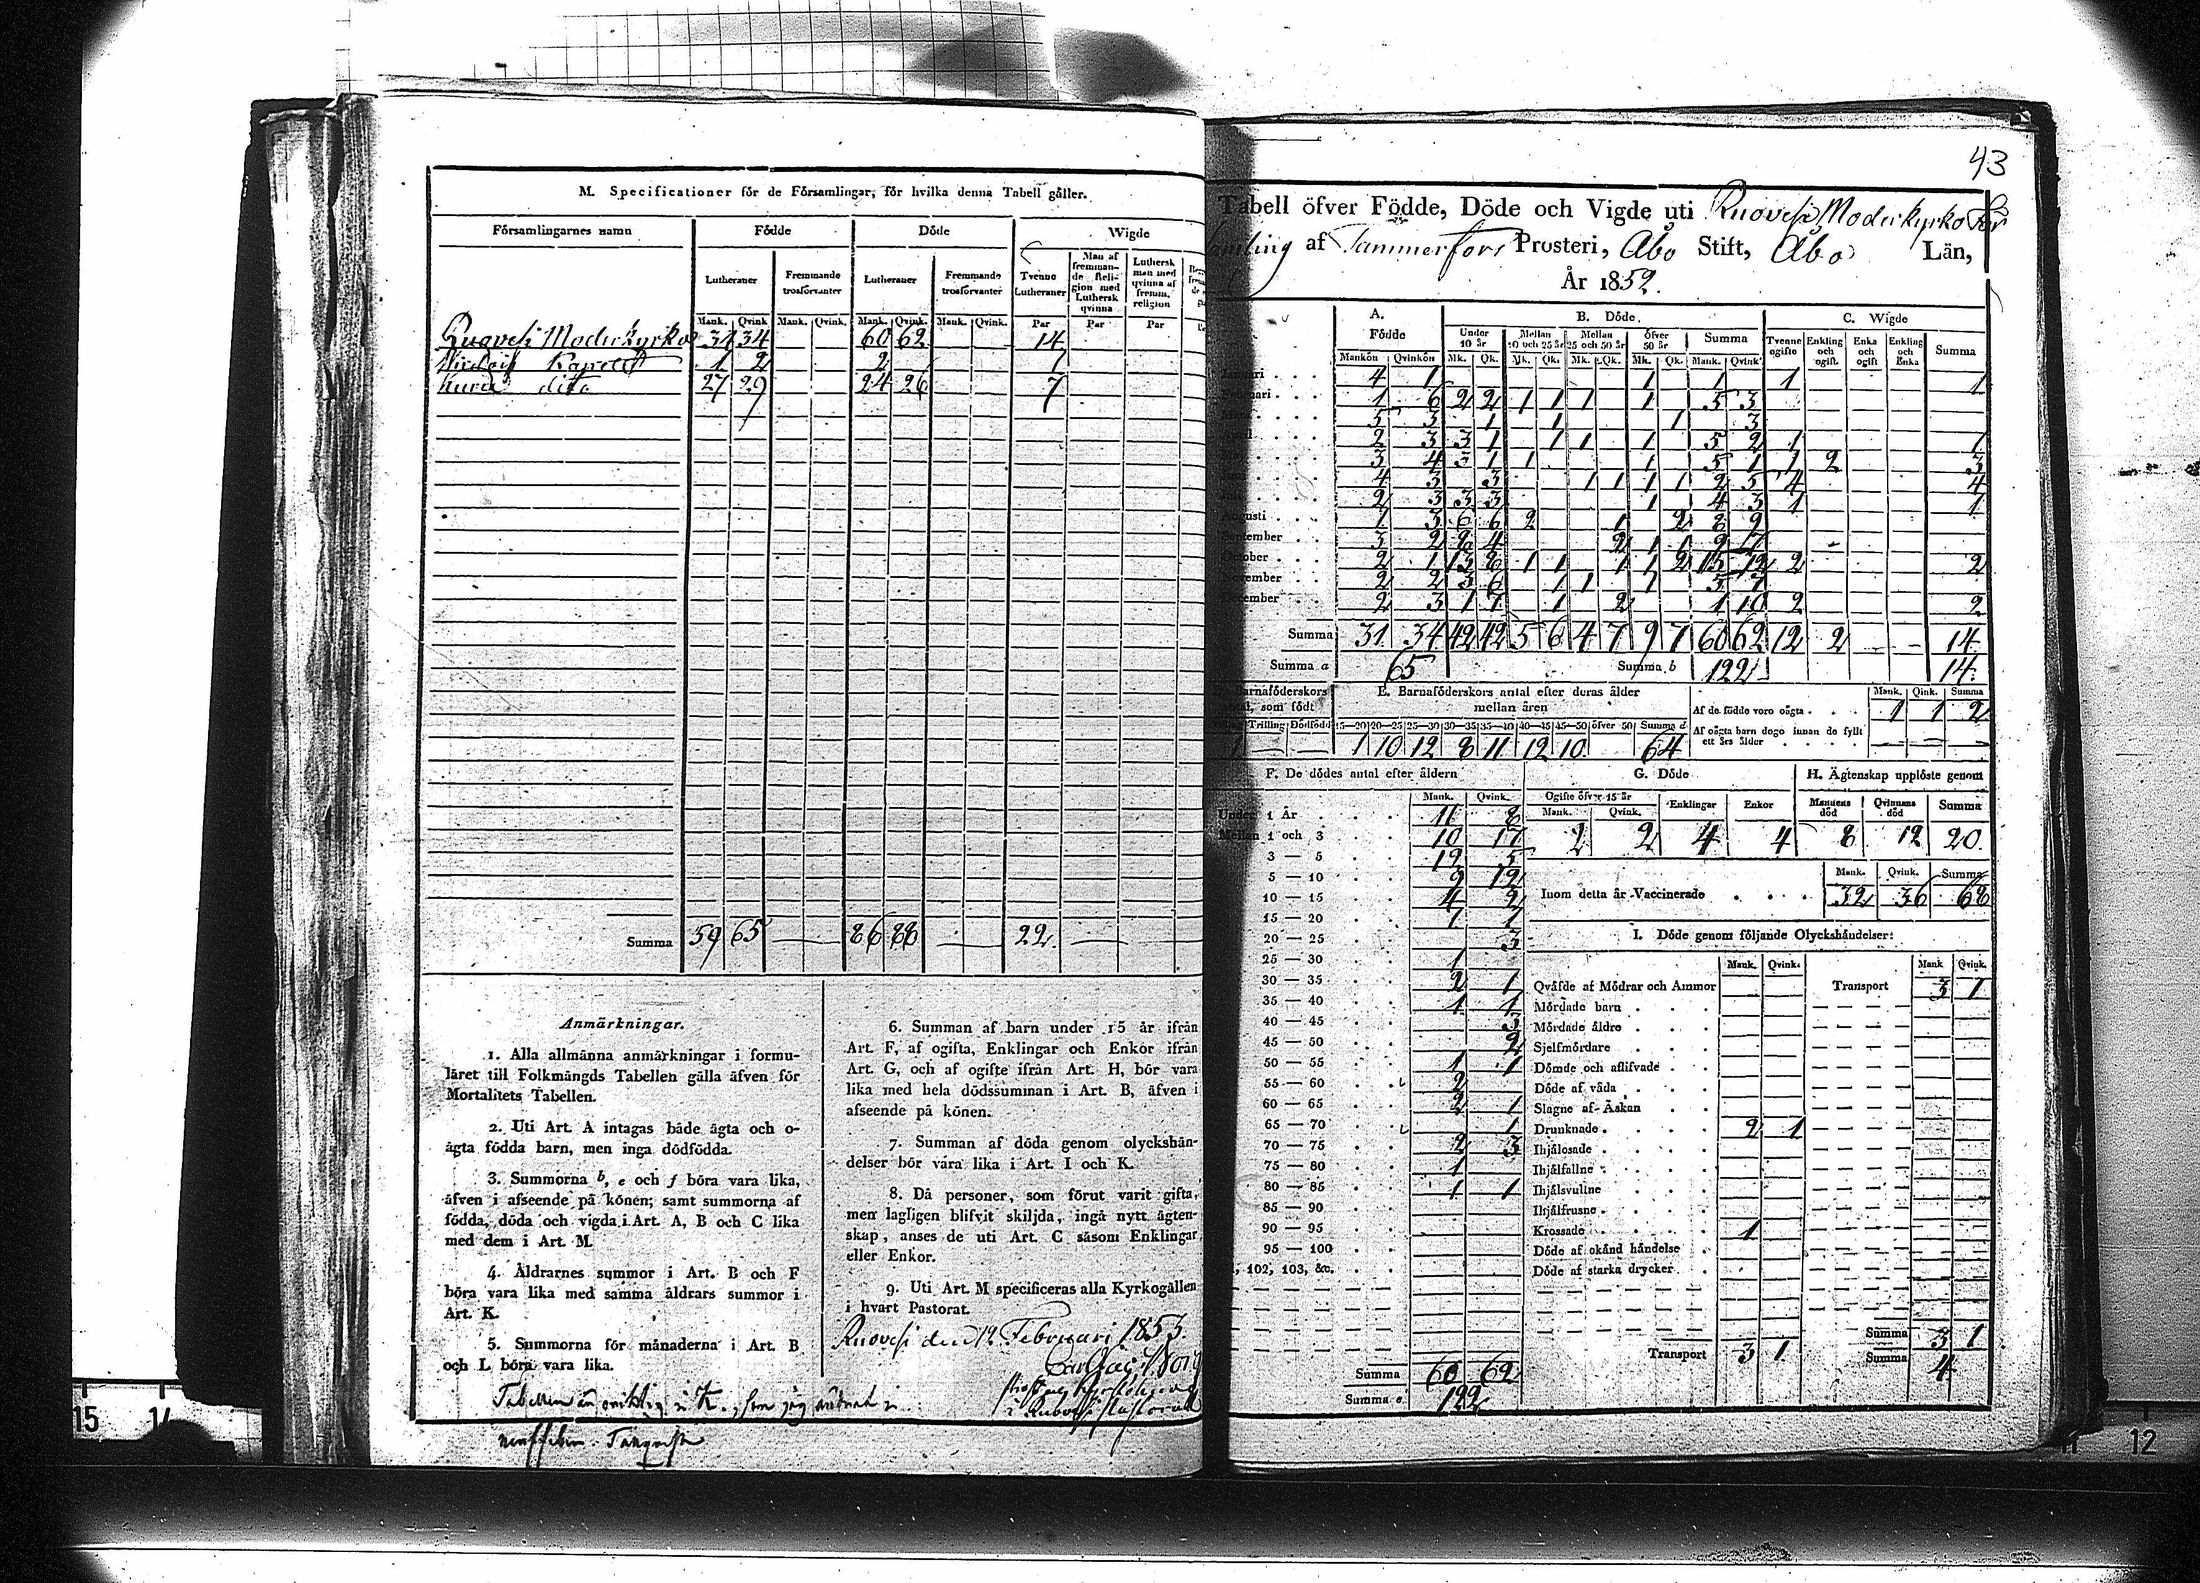 M. Specificationer för de Församlingar, för hvilka denna Tabell gäller.
Församlingarnes namn Födde Döde Wigde
Lutheraner Fremmande trosförvanter Lutheraner Fremmande trosförvanter Tvenne Lutheraner Man af fremmande Religion med Luthersk qvinna Luthersk man med qvinna af fremm. religion
Mank. Qvink. Mank. Qvink. Mank. Qvink. Mank. Qvink. Par Par Par
Ruovesi Moderkyrko 31 34 60 62 14
Kapell 1 2 2 1
Kuru dito 27 29 24 26 7
Summa 59 65 86 88 22
Anmärkningar.
1. Alla allmänna anmärkningar i formu-
läret till Folkmängds Tabellen gälla äfven för
Mortalitets Tabellen.
2. Uti Art. A intagas både ägta och o-
ägta födda barn, men inga dödfödda.
3. Summorna b, e och f böra vara lika,
äfven i afseende på könen; samt summorna af
födda, döda och vigda i Art. A, B och C lika
med dem i Art. M.
4. Äldrarnes summor i Art. B och F
böra vara lika med samma äldrars summor i
Art. K.
5. Summorna för månaderna i Art. B
och L böra vara lika.
6. Summan af barn under 15 år ifrån
Art. F, af ogifta, Enklingar och Enkor ifrån
Art. G, och af ogifte ifrån Art. H, bör vara
lika med hela dödssumman i Art. B, äfven i
afseende på könen.
7. Summan af döda genom olyckshän-
delser bör vara lika i Art. I och K.
8. Då personer, som förut varit gifta,
men lagligen blifvit skiljda, ingå nytt ägten-
skap, anses de uti Art. C såsom Enklingar
eller Enkor.
9. Uti Art. M specificeras alla Kyrkogällen
i hvart Pastorat.
Ruovesi den 12 Februari 1853.
Tabellen är oriktig i K., som jag ändrat
43
Tabell öfver Födde, Döde och Vigde uti Ruovesi Moderkyrko För
samling af Tammerfors Prosteri, Åbo Stift, Åbo Län,
År 1852.
A. Födde B. Döde C. Wigde
Under 10 år Mellan 10 och 25 år Mellan 25 och 50 år öfver 50 år Summa Tvenne ogifte Enkling och ogift Enka och ogift Enkling och Enka Summa
Mankön Qvinkön Mk. Qk. Mk. Qk. Mk. Qk. Mk. Qk. Mank. Qvink.
Januari 4 1 1 1 1 1
Februari 1 6 2 2 1 1 1 1 5 3
5 3 1 1 1 3
April 2 3 3 1 1 1 1 5 2 1 1
3 4 3 1 1 1 5 1 1 2 3
4 3 3 1 1 1 1 2 5 4 4
2 3 3 3 1 4 3 1 1
Augusti 1 3 6 6 2 1 2 8 9
September 3 2
October 2 1 12 8 1 1 1 1 2 15 12 2 2
November 2 2 3 6 1 1 1 5 7
December 2 3 1 7 1 2 1 10 2 2
Summa 31 34 42 42 5 6 4 7 9 7 60 62 12 2 14
Summa a 65 Summa b 122 14
Barnaföderskors antal, som födt
Trilling Dödfödd
1
E. Barnaföderskors antal efter deras ålder mellan åren
15—20 20—25 25—30 30—35 35—40 40—45 45—50 öfver 50 Summa d
1 10 12 8 11 12 10 64
Mank. Qink. Summa
Af de födde voro oägta 1 1 2
Af oägta barn dogo innan de fyllt ett års ålder
F. De dödes antal efter åldern
Mank. Qvink.
Under 1 År 11 8
Mellan 1 och 3 10 17
3 — 5 12 5
5 — 10 9 12
10 — 15 4 2
15 — 20 1 1
20 — 25 3
25 — 30 1
30 — 35 2 1
35 — 40 1 1
40 — 45 3
45 — 50 2
50 — 55 1 1
55 — 60 2
60 — 65 2 1
65 — 70 1
70 — 75 2 3
75 — 80 1
80 — 85 1 1
85 — 90
90 — 95
95 — 100
102, 103, &c.
Summa 60 62
Summa e 122
G. Döde H. Ägtenskap upplöste genom
Ogifte öfver 15 år Enklingar Enkor Mannens död Qvinnans död Summa
Mank. Qvink.
2 2 4 4 8 12 20
Mank. Qvink. Summa
Inom detta år Vaccinerade 32 36 68
I. Döde genom följande Olyckshändelser:
Mank. Qvink. Mank Qvink.
Qväfde af Mödrar och Ammor Transport 3 1
Mördade barn
Mördade äldre
Sjelfmördare
Dömde och aflifvade
Döde af våda
Slagne af Åskan
Drunknade 2 1
Ihjälosade
Ihjälfallne
Ihjälsvultne
Ihjälfrusne
Krossade 1
Döde af okänd händelse
Döde af starka drycker
Transport 3 1 Summa 3 1
Summa 4